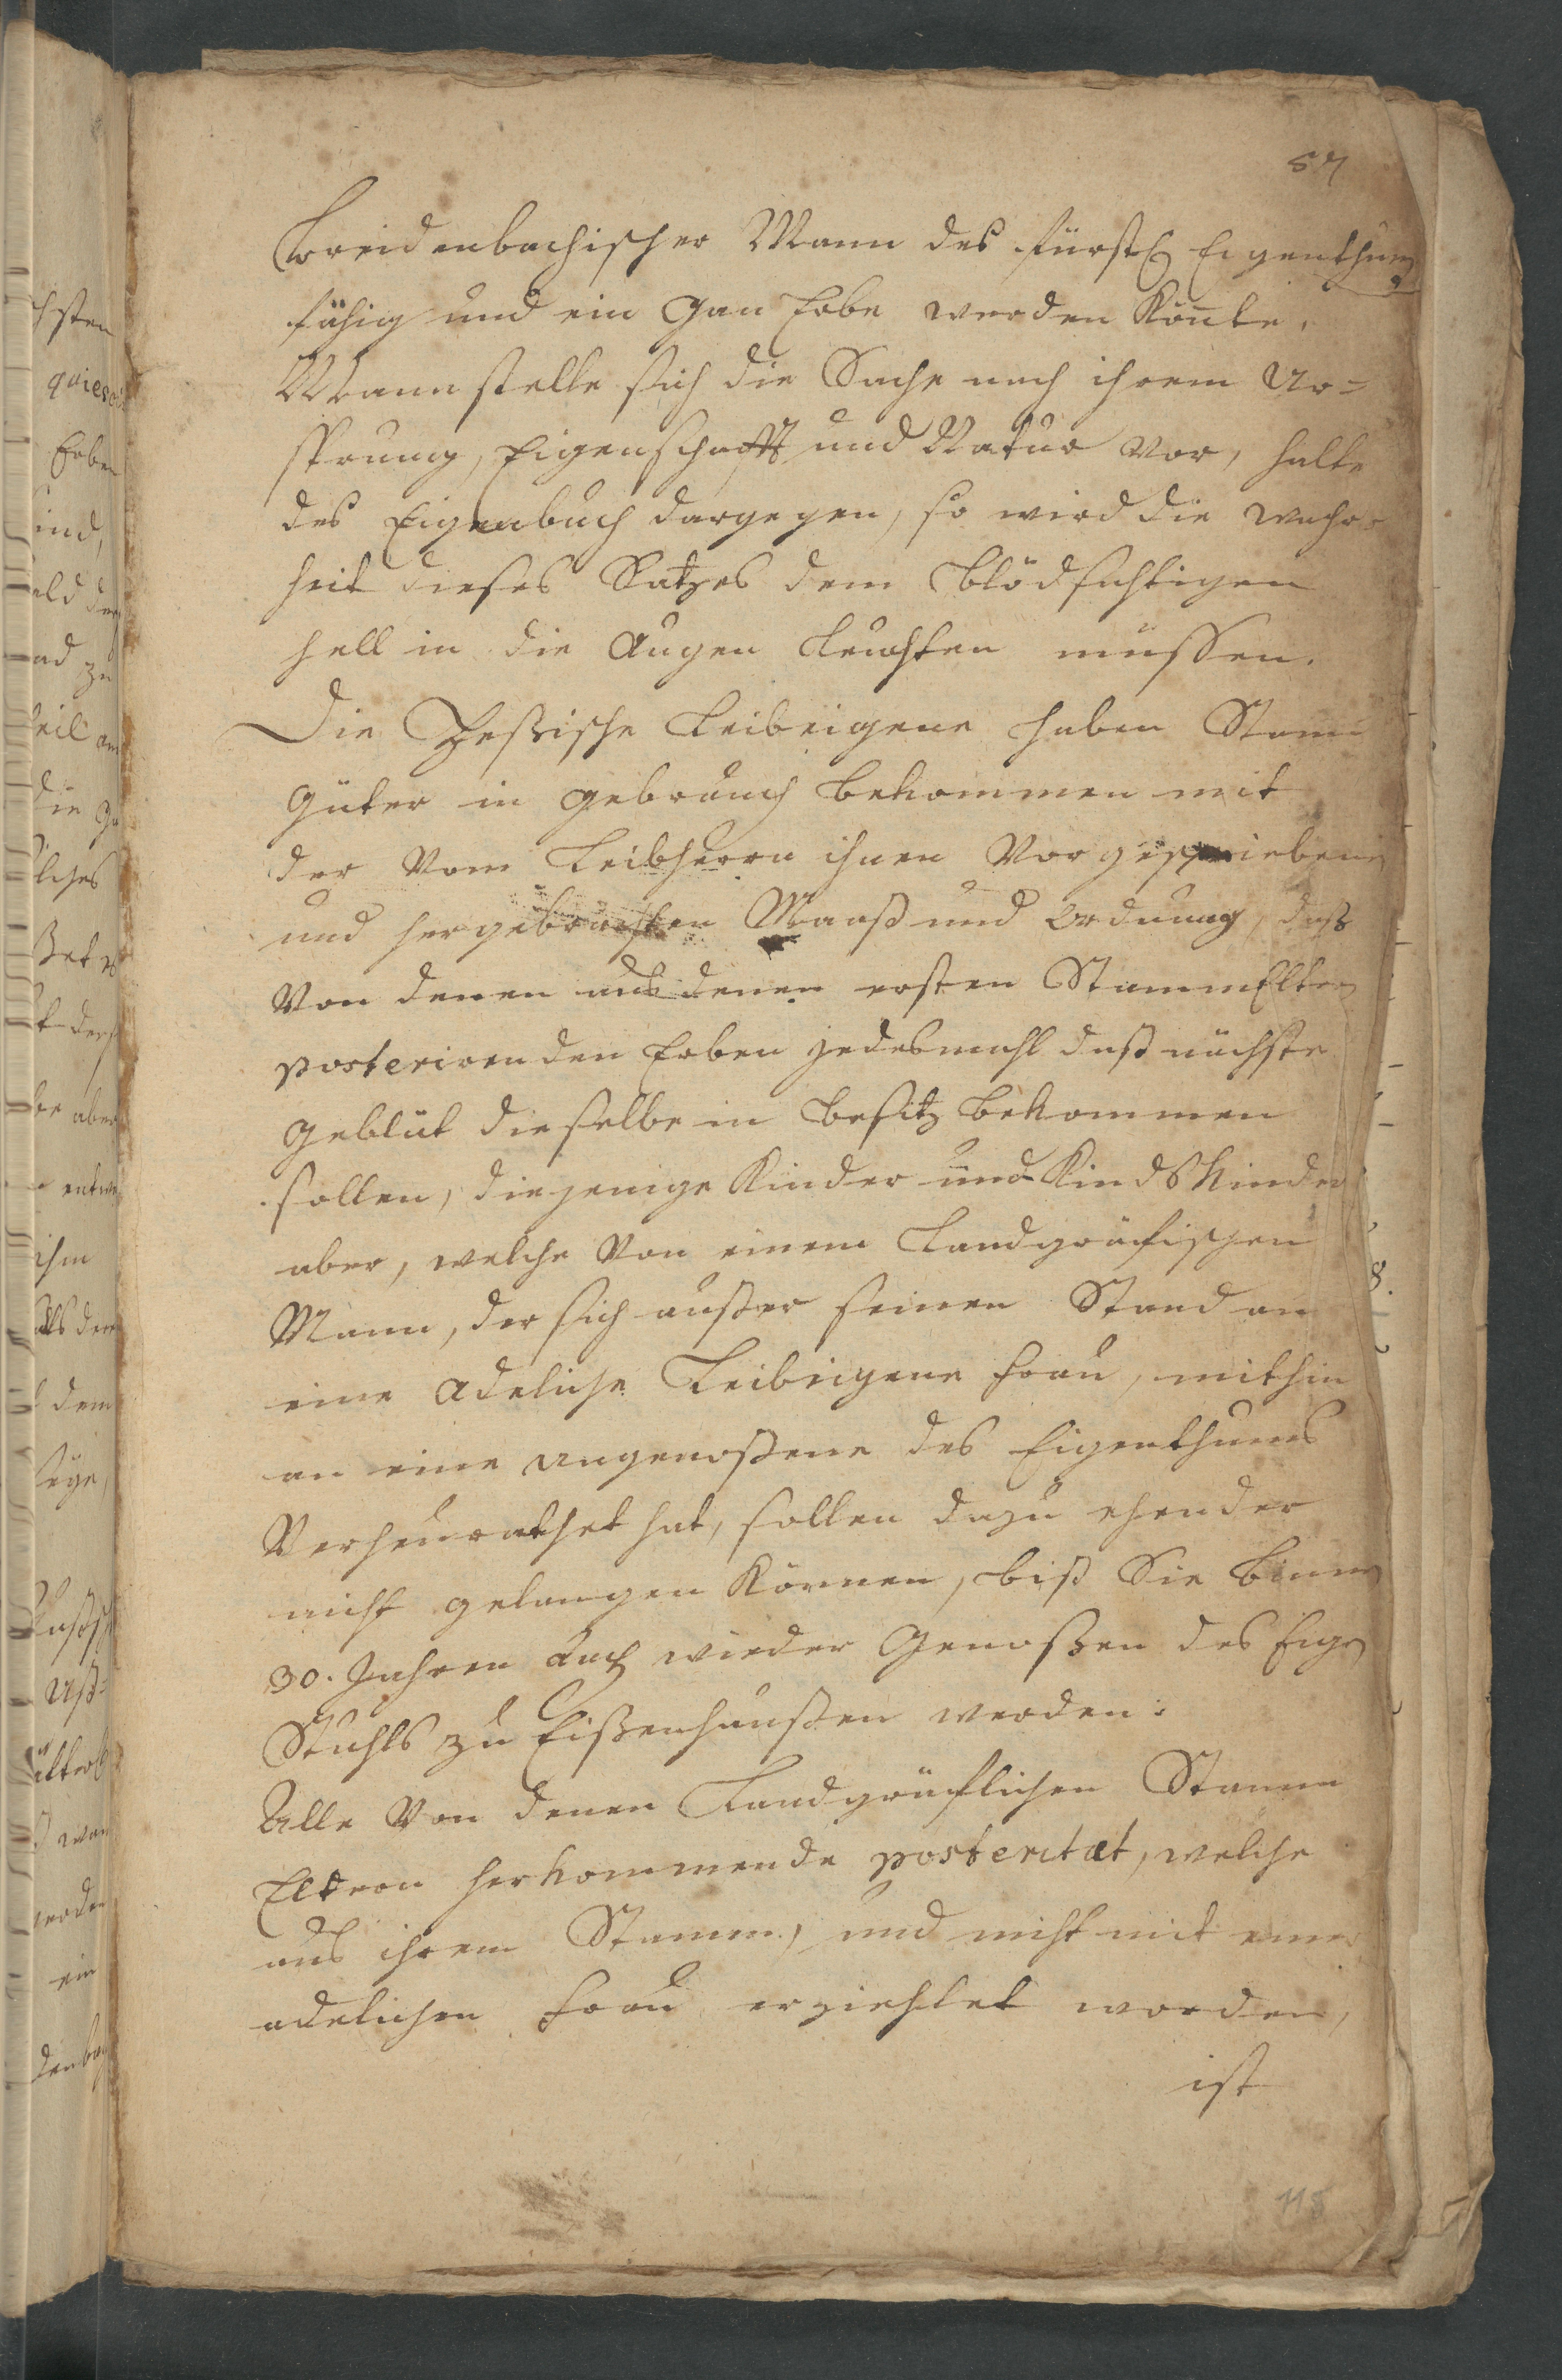 57
Breidenbachischer Mann des fürstl Eigenthums
fähig und ein Gan Erbe werden Könte,
Mann stelle sich die Sache nach ihrem Ur=
sprung, Eigenschafft und Natur vor, halte
das Eigenbuch dargegen, so wird die wahr=
heit dieses Satzes dem blödsichtigen
hell in die Augen leuchten müssen.
Die Heßische Leibeigene haben Stamm
Güter in gebrauch bekommen mit
der vom Leibherrn ihnen vorgeschriebenen
und hergebrachten Maaß und Ordnung, daß
von denen aus denen ersten StammEltern
posterirenden Erben jedesmahl daß nächste
Geblüt dieselbe in besitz bekommen
sollen, diejenige Kinder und KindsKinder
aber, welche von einem Landgräfischen
Mann, der sich außer seinen Stand an
eine Adeliche Leibeigene frau, mithin
an eine ungenoßene des Eigenthums
Verheurathet hat, sollen dazu ehender
nicht gelangen Können, biß Sie binnen
30. Jahren auch wieder Genoßen des Eigen
Stuhls zu Eißenhaußen werden.
Alle von denen Landgräflichen Stamm
Eltern herkommende posteritæt, welche
aus ihrem Stamm, und nicht mit einer
adelichen frau erziehlet worden,
ist
118